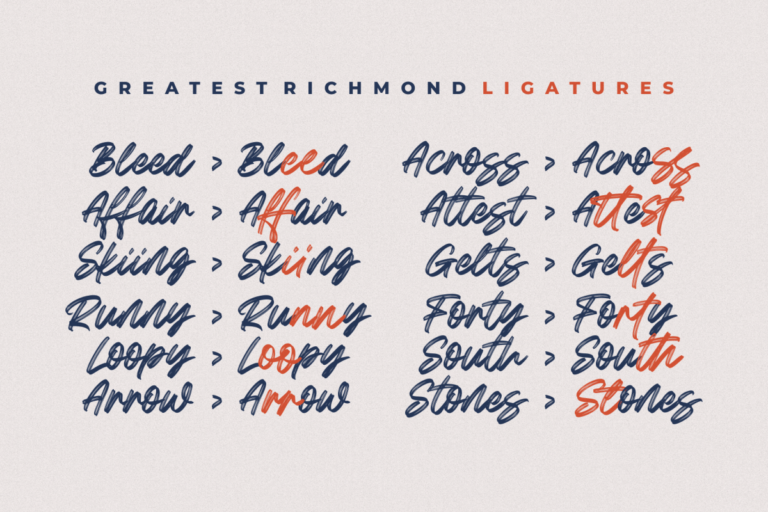 GREATEST RICHMOND LIGATURES
Bleed > Bleed
Affair > Affair
Skiing > Skiing
Runny > Runny
Loopy > Loopy
Arrow > Arrow
Across > Across
Attest > Attest
Gelts > Gelts
Forty > Forty
South > South
Stones > Stones